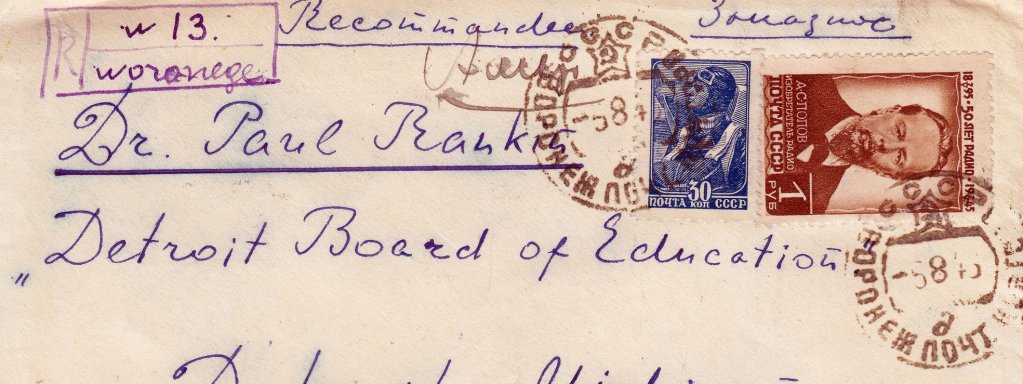 R w 13.
woronege
Recommandee Заказное
Dr. Paul Rankin
„Detroit Board of Education"
30
ПОЧТА КОП СССР
1895·50 ЛЕТ РАДИО·1945
А·С·ПОПОВ
ИЗОБРЕТАТЕЛЬ РАДИО
ПОЧТА СССР
1
РУБ
СССР
-5 8 45
ВОРОНЕЖ ПОЧТ
-5 8 45
ВОРОНЕЖ ПОЧТ